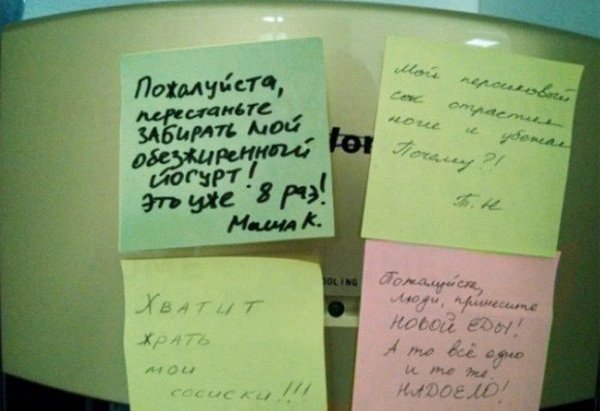 Пожалуйста,
перестаньте
ЗАБИРАТЬ МОЙ
обезжиренный
ЙОГУРТ!
Это уже 8 раз!
Маша К.
Мой персиковый
сок отрастил
ноги и убежал
Почему?!
Т.Н
OLING
ХВАТИТ
ЖРАТЬ
МОИ
СОСИСКИ!!!
Пожалуйста,
люди, принесите
НОВОЙ ЕДЫ!
А то всё одно
и то же.
НАДОЕЛО!